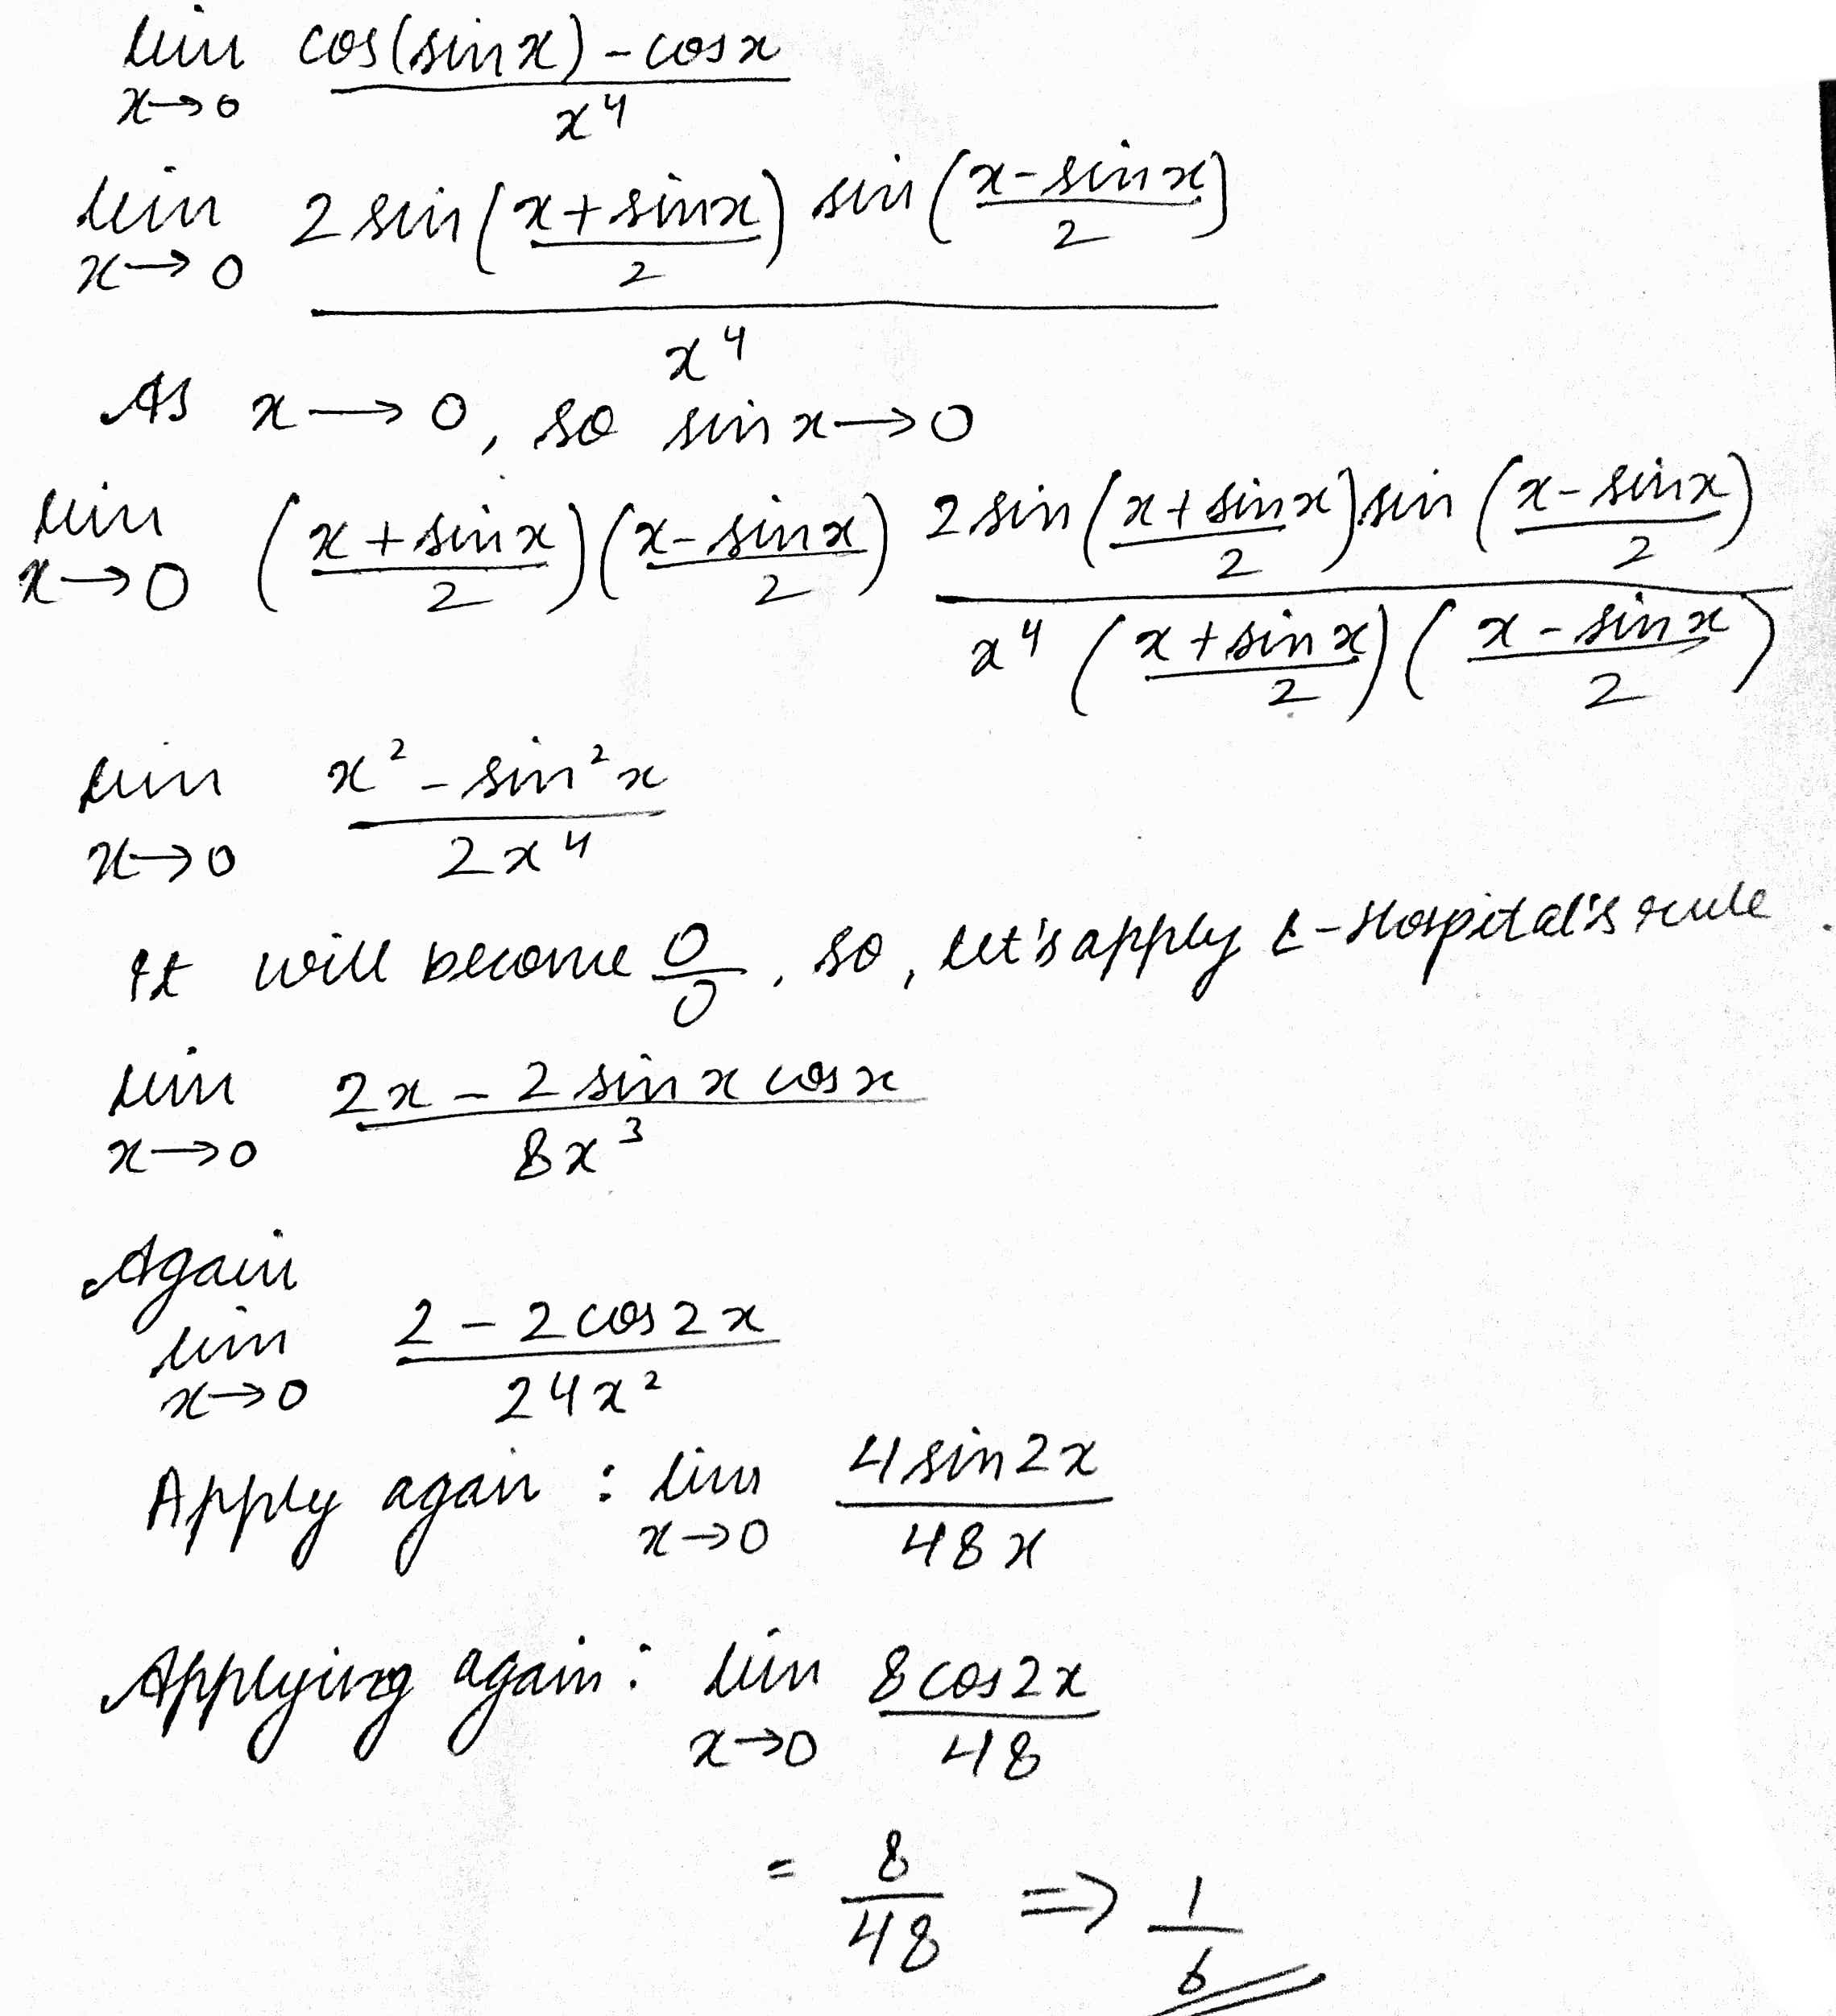 lim x→0 cos(sin x) - cos x / x^4
lim x→0 2 sin (x + sin x / 2) sin (x - sin x / 2) / x^4
As x → 0, so sin x → 0
lim x→0 (x + sin x / 2) (x - sin x / 2) 2 sin (x + sin x / 2) sin (x - sin x / 2) / x^4 (x + sin x / 2) (x - sin x / 2)
lim x→0 x^2 - sin^2 x / 2x^4
It will become 0/0, so, let's apply L-Hospital's rule.
lim x→0 2x - 2 sin x cos x / 8x^3
Again
lim x→0 2 - 2 cos 2x / 24x^2
Apply again : lim x→0 4 sin 2x / 48x
Applying again : lim x→0 8 cos 2x / 48
= 8/48 ⇒ 1/6